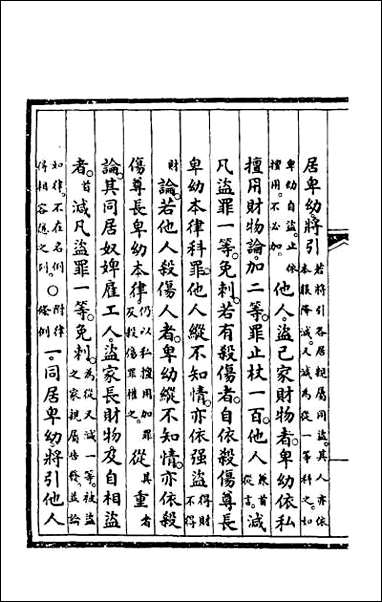 居卑幼將引若將引各居親屬同盜其人亦依本服降減又減為從一等科之如
卑幼自盜止依擅用不必加他人盜己家財物者卑幼依私
擅用財物論加二等罪止杖一百他人兼首從言減
凡盜罪一等免刺若有殺傷者自依殺傷尊長
卑幼本律科罪他人縱不知情亦依強盜得財不得
財論若他人殺傷人者卑幼縱不知情亦依殺
傷尊長卑幼本律仍以私擅用加罪及殺傷罪權之從其重者
論其同居奴婢雇工人盜家長財物及自相盜
者首減凡盜罪一等免刺為從又減一等被盜之家親屬告發並論
如律不在名例得相容隱之例○附律條例一同居卑幼將引他人